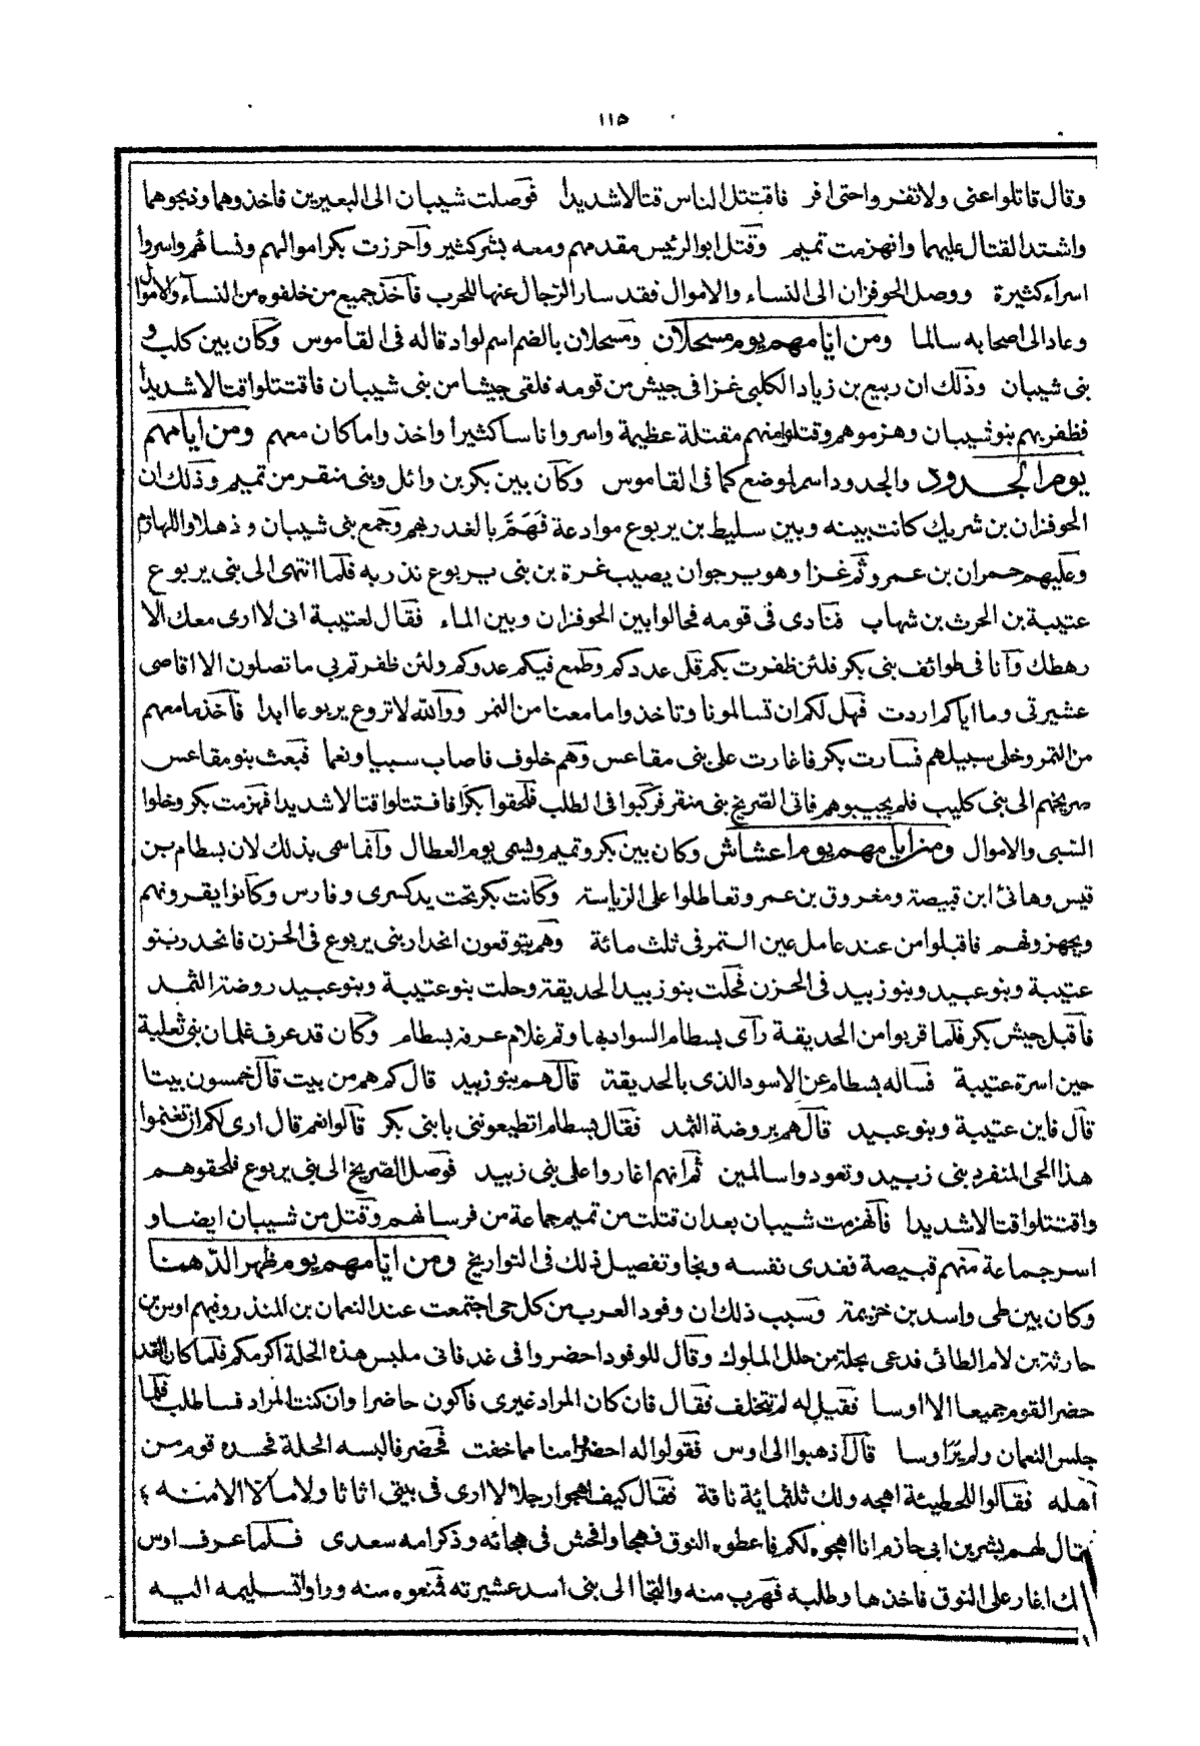 ١١٥
وقال قاتلوا عنى ولا تفروا حتى افر فاقتتل الناس قتالا شديدا فوصلت شيبان الى البعيرين فاخذوهما وذبحوهما
واشتد القتال عليهما وانهزمت تميم وقتل ابو الرئيس مقدمهم ومعه بشر كثير وآحرزت بكر اموالهم ونسائهم واسروا
اسراء كثيرة ووصل الحوفزان الى النساء والاموال فقد سار الرجال عنها للحرب فآخذ جميع من خلفوه من النسآء والاموال
وعاد الى اصحابه سالما ومن ايامهم يوم مسحلان ومسحلان بالضم اسم لواد قاله فى القاموس وكان بين كلب و
بنى شيبان وذلك ان ربيع بن زياد الكلبى غزا فى جيش من قومه فلقى جيشا من بنى شيبان فاقتتلوا قتالا شديدا
فظفر بهم بنو شيبان وهزموهم وقتلوا منهم مقتلة عظيمة واسروا ناسا كثيرا واخذوا ما كان معهم ومن ايامهم
يوم الجدود والجدود اسم لموضع كما فى القاموس وكآن بين بكر بن وائل وبنى منقر من تميم وذلك ان
الحوفزان بن شريك كانت بينه وبين سليط بن يربوع موادعة فهَمَّ بالغدر بهم وجمع بنى شيبان وذهلا واللهازم
وعليهم حمران بن عمرو ثم غزا وهو يرجوان يصيب غرة بن بنى يربوع نذر به فلما انتهى الى بنى يربوع
عتيبة بن الحرث بن شهاب فنادى فى قومه فحالوا بين الحوفزان وبين الماء فقال لعتيبة انى لا ارى معك الا
رهطك وآنا فى طوائف بنى بكر فلئن ظفرت بكم قل عددكم وطمع فيكم عدوكم ولئن ظفرتم بى ما تصلون الا اقاصى
عشيرتى وما اياكم اردت فهل لكم ان تسالمونا وتاخذوا ما معنا من التمر ووآلله لا تروع يربوعا ابدا فآخذ ما معهم
من التمر وخلى سبيلهم فسآرت بكر فاغارت على بنى مقاعس وهم خلوف فاصاب سبيا ونعما فبعث بنو مقاعس
صريخهم الى بنى كليب فلم يجيبوهم فاتى الصريخ بنى منقر فركبوا فى الطلب فلحقوا بكرا فاقتتلوا قتالا شديدا فهزمت بكر وخلوا
السبى والاموال ومن ايامهم يوم اعشاش وكان بين بكر وتميم ويسمى يوم العطال وآنما سمى بذلك لان بسطام بن
قيس وهانئ ابن قبيصة ومغروق بن عمر وتعاطلوا على الرياسة وكانت بكر تحت يد كسرى وفارس وكآنوا يقرونهم
ويجهزونهم فاقبلوا من عند عامل عين التمر فى ثلث مائة وهم يتوقعون انحدار بنى يربوع فى الحزن فانحدر بنو
عتيبة وبنو عبيد وبنو زبيد فى الحزن فحلت بنو زبيد الحديقة وحلت بنو عتيبة وبنو عبيد روضة الثمد
فآقبل جيش بكر فلما قربوا من الحديقة رآى بسطام السواد بها وثم غلام عرفه بسطام وكآن قد عرف غلمان بنى ثعلبة
حين اسرة عتيبة فساله بسطام عن الاسود الذى بالحديقة قآل هم بنو زبيد قال كم هم من بيت قآل خمسون بيتا
قآل فاين عتيبة وبنو عبيد قآل هم بروضة الثمد فقال بسطام اتطيعوننى يا بنى بكر قآلوا نعم قال ارى لكم ان تغنموا
هذا الحى المنفرد بنى زبيد وتعودوا سالمين ثم انهم اغاروا على بنى زبيد فوصل الصريخ الى بنى يربوع فلحقوهم
واقتتلوا قتالا شديدا فآنهزمت شيبان بعد ان قتلت من تميم جماعة من فرسانهم وقتل من شيبان ايضا و
اسر جماعة منهم قبيصة ففدى نفسه ونجا وتفصيل ذلك فى التواريخ ومن ايامهم يوم ظهر الدهنا
وكان بين طى واسد بن خزيمة وسبب ذلك ان وفود العرب من كل حى اجتمعت عند النعمان بن المنذر وفيهم اوس بن
حارثة بن لام الطائى فدعى بحلة من حلل الملوك وقال للوفود احضروا فى غد فانى ملبس هذه الحلة اكرمكم فلما كان الغد
حضر القوم جميعا الا اوسا فقيل له لم تتخلف فقال فان كان المراد غيرى فآكون حاضرا وان كنت المراد فساطلب فلما
جلس النعمان ولم ير اوسا قآل آذهبوا الى اوس فقولوا له احضر امنا مما خفت فحضر فالبسه الحلة فحسده قوم من
آهله فقآلوا للحطيئة اهجه ولك ثلثمائة ناقة فقآل كيف اهجو رجلا لا ارى فى بيتى اثاثا ولا مالا الا منه ؛
قال لهم بشر بن ابى حازم انا اهجوه لكم فاعطوه النوق فهجا وافحش فى هجائه وذكر امه سعدى فلما عرف اوس
لك اغار على النوق فاخذها وطلبه فهرب منه والتجا الى بنى اسد عشيرته فمنعوه منه وراوا تسليمه اليه